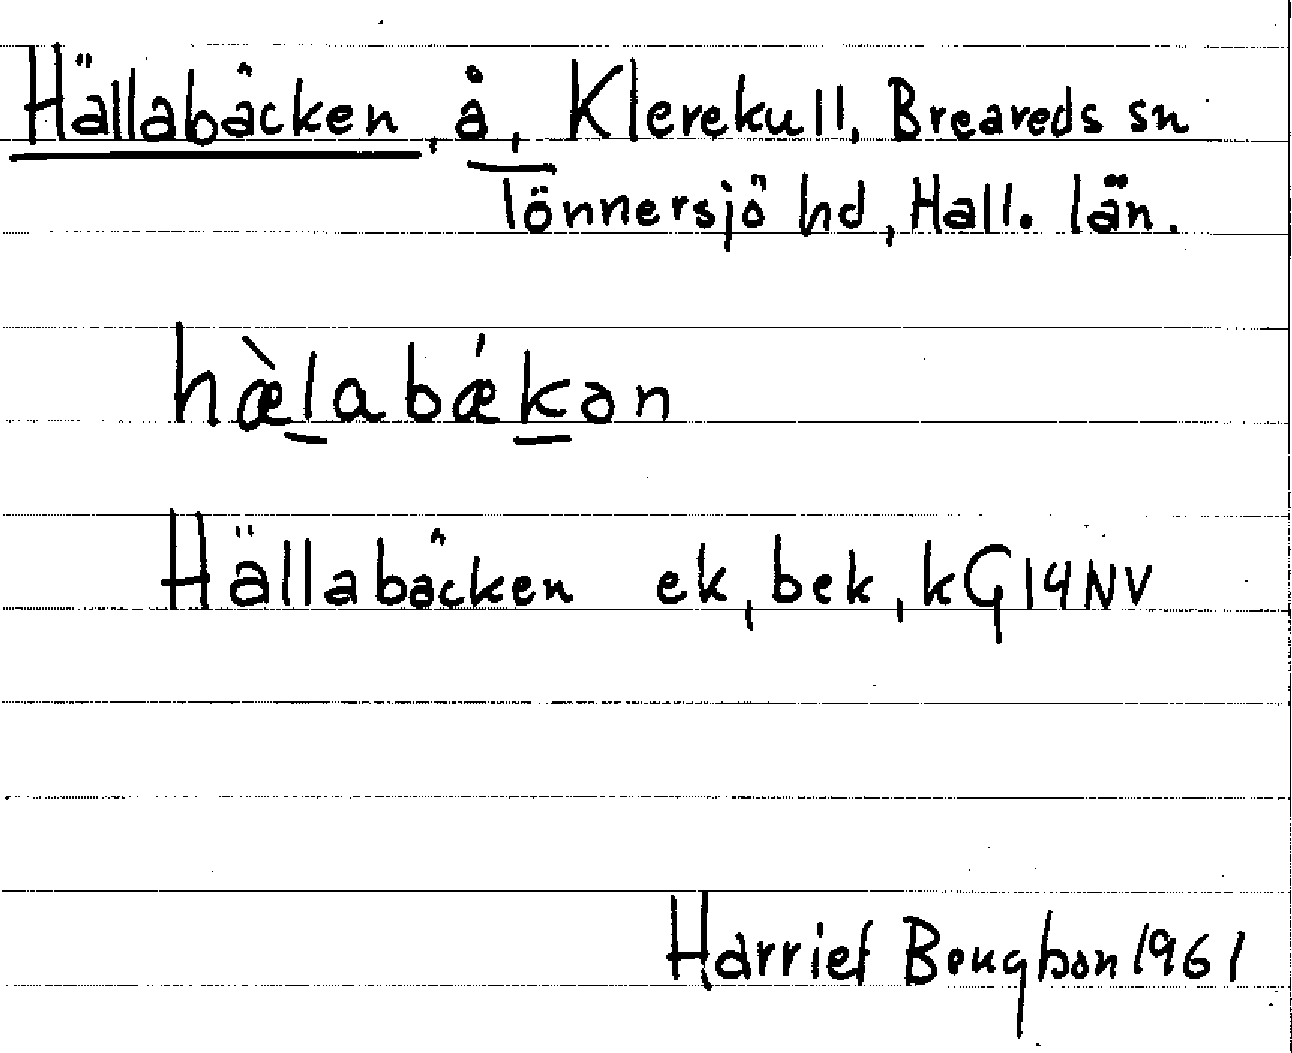 Hällabäcken, å, Klerekull, Breareds sn
Tönnersjö hd, Hall. län.
hæ̀l̲abǽk̲ən
Hällabäcken ek, bek, kG14NV
Harriet Bengtson 1961